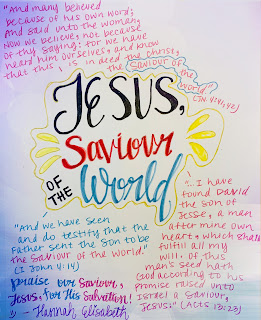 "And many believed
because of his own word;
And said unto the woman,
Now we believe, not because
of thy saying: for we have
heard him ourselves, and know
that this is in deed the Christ,
the Saviour of the
World."
(Jn 4:41,42)
JESUS,
Saviour
OF
THE World
"And we have seen
and do testify that the
Father sent the Son to be
the Saviour of the World."
(I John 4:14)
"...I have
found David
the son of
Jesse, a man
after mine own
heart, which shall
fulfill all my
will. Of this
man's seed hath
God according to his
promise raised unto
Israel a Saviour,
Jesus:" (Acts 13:23)
praise our Saviour,
Jesus, For His Salvation!
:) - Hannah Elisabeth